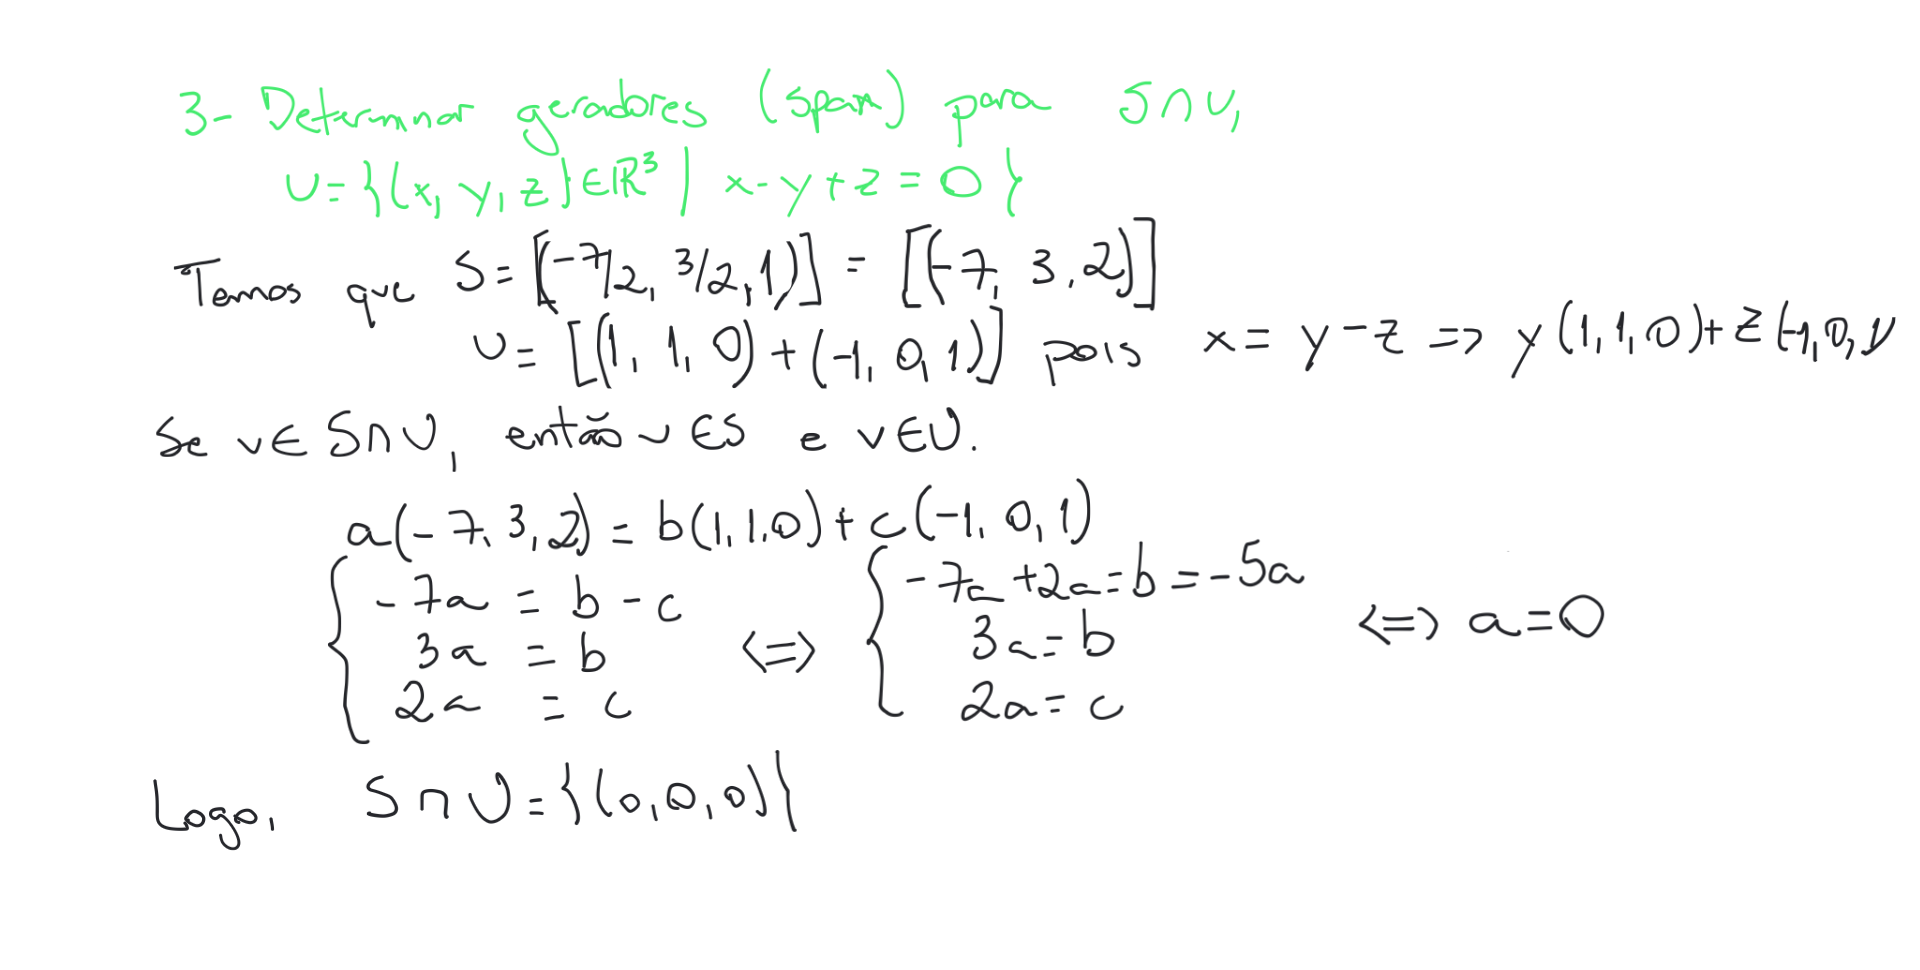 3- Determnar geradores (span) para S∩U,
U={(x, y, z)∈ℝ³ | x-y+z=0}
Temos que S=[(-7/2, 3/2, 1)] = [(-7, 3, 2)]
U= [(1, 1, 0)+(-1, 0, 1)] pois x= y-z => y(1,1,0)+z(-1,0,1)
Se v∈S∩U, então v∈S e v∈U.
a(-7, 3, 2) = b(1,1,0)+c(-1, 0, 1)
{ -7a = b-c
3a = b
2a = c
<=>
{ -7a+2a=b=-5a
3a=b
2a=c
<=> a=0
Logo, S∩U={(0,0,0)}